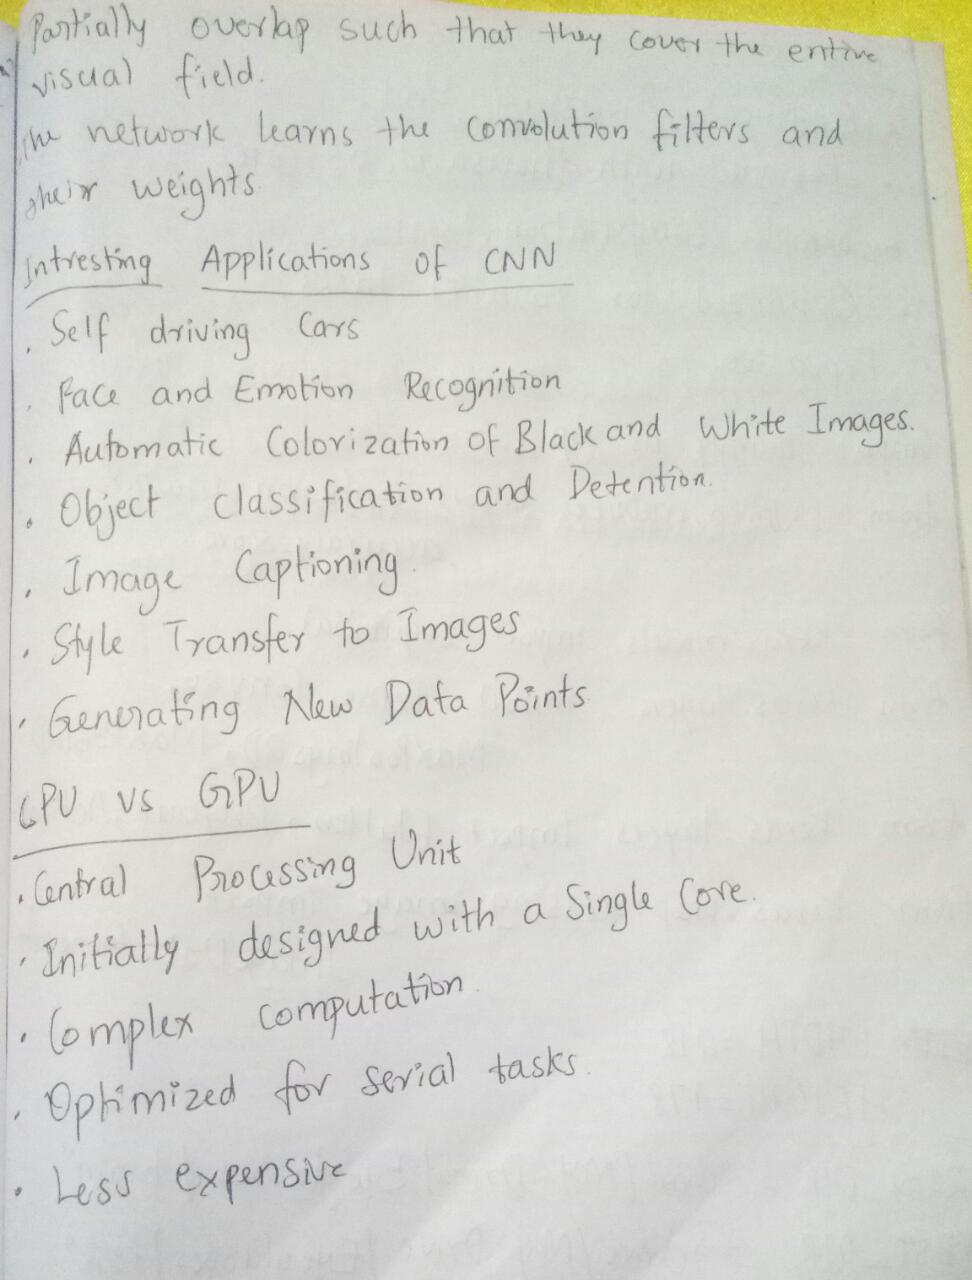 Partially overlap such that they cover the entire
visual field.
The network learns the convolution filters and
their weights.
Intresting Applications of CNN
. Self driving Cars
. Face and Emotion Recognition
. Automatic Colorization of Black and White Images.
. Object classification and Detention.
. Image Captioning.
. Style Transfer to Images
. Generating New Data Points
CPU vs GPU
. Central Processing Unit
. Initially designed with a Single Core.
. Complex computation.
. Optimized for serial tasks.
. Less expensive